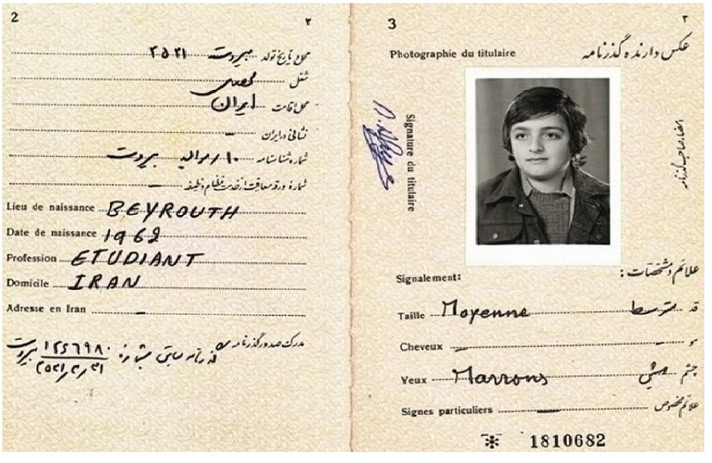 2 ۲
محل و تاریخ تولد بیروت ۲۵۲۱
شغل محصل
محل اقامت ایران
نشانی در ایران –
شماره شناسنامه ۱۰ / موالید بیروت
شماره ورقه معافیت از خدمت نظام وظیفه –
Lieu de naissance BEYROUTH
Date de naissance 1962
Profession ETUDIANT
Domicile IRAN
Adresse en Iran –
مدرک صدور گذرنامه
بیروت
3 ۳
Photographie du titulaire عکس دارنده گذرنامه
Signature du titulaire
امضاء صاحب گذرنامه
Signalement: علائم و مشخصات :
Taille Moyenne متوسط قد
Cheveux – – مو
Yeux Marrons میشی چشم
Signes particuliers – علائم مخصوص
1810682